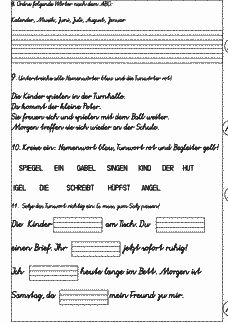 8. Ordne folgende Wörter nach dem ABC:
Kalender, Musik, Juni, Juli, August, Januar
9. Unterstreiche alle Namenwörter blau und die Tunwörter rot!
Die Kinder spielen in der Turnhalle.
Da kommt der kleine Peter.
Sie freuen sich und spielen mit dem Ball weiter.
Morgen treffen sie sich wieder an der Schule.
10. Kreise ein: Namenwort blau, Tunwort rot und Begleiter gelb!
SPIEGEL EIN GABEL SINGEN KIND DER HUT
IGEL DIE SCHREIBT HÜPFST ANGEL
11. Setze das Tunwort richtig ein (es muss zum Satz passen)!
Die Kinder am Tisch. Du
einen Brief. Ihr jetzt sofort ruhig!
Ich heute lange im Bett. Morgen ist
Samstag, da mein Freund zu mir.